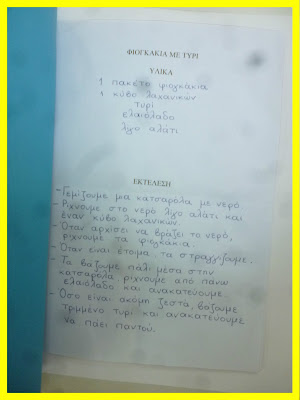 ΦΙΟΓΚΑΚΙΑ ΜΕ ΤΥΡΙ
ΥΛΙΚΑ
1 πακέτο φιογκάκια
1 κύβο λαχανικών
τυρί
ελαιόλαδο
λίγο αλάτι
ΕΚΤΕΛΕΣΗ
- Γεμίζουμε μια κατσαρόλα με νερό.
- Ρίχνουμε στο νερό λίγο αλάτι και
έναν κύβο λαχανικών.
- Όταν αρχίσει να βράζει το νερό,
ρίχνουμε τα φιογκάκια.
- Όταν είναι έτοιμα, τα στραγγίζουμε.
- Τα βάζουμε πάλι μέσα στην
κατσαρόλα, ρίχνουμε από πάνω
ελαιόλαδο και ανακατεύουμε.
- Όσο είναι ακόμη ζεστά, βάζουμε
τριμμένο τυρί και ανακατεύουμε
να πάει παντού.